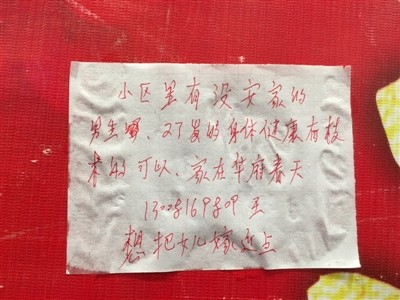 小区里有没安家的
男生嘛、27岁的身体健康有技
术的可以、家在华府春天
想把女儿嫁近点